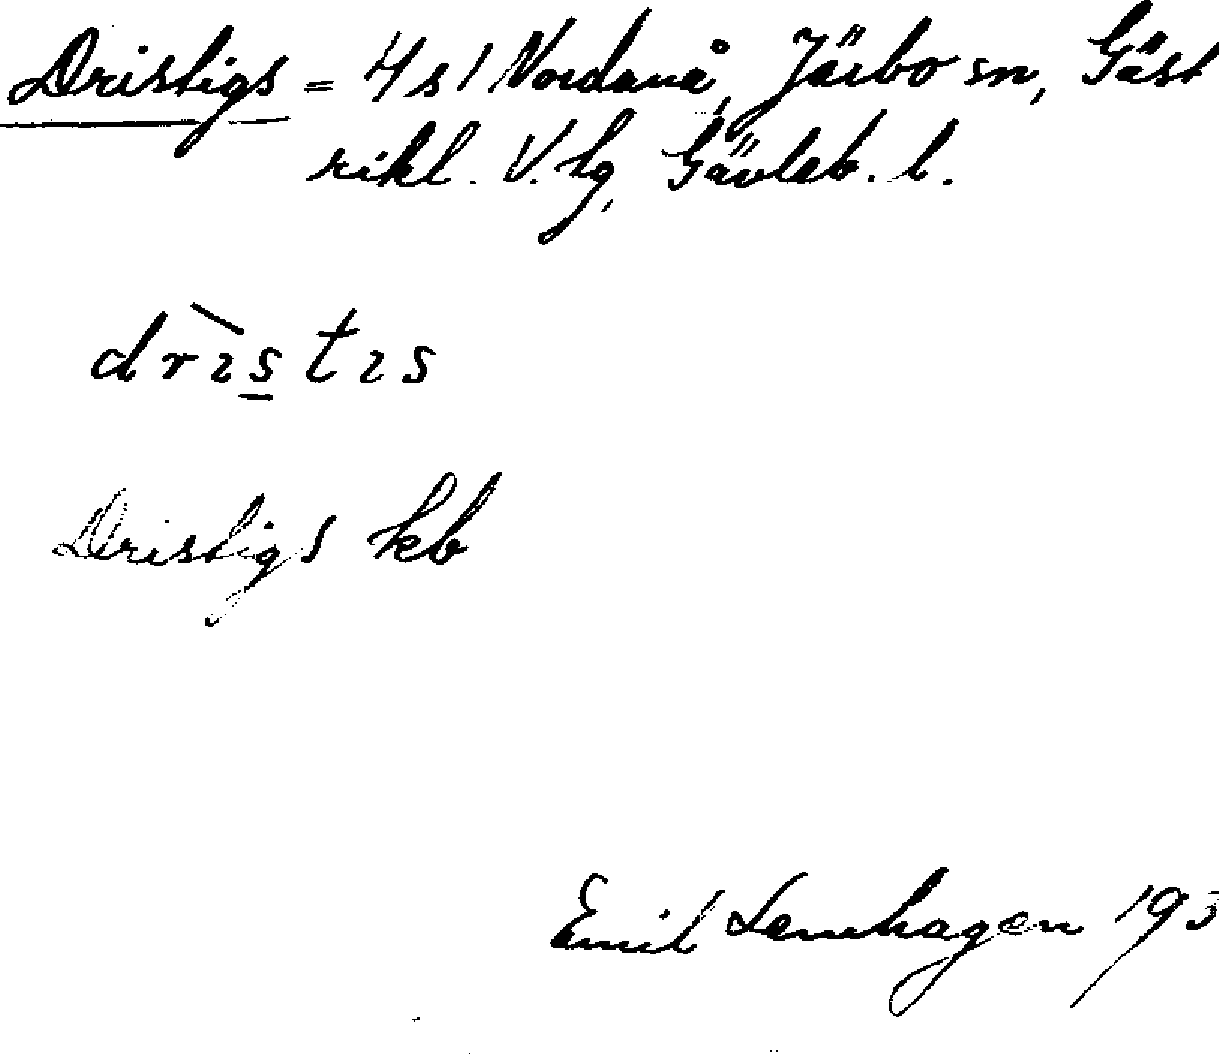 Dristigs = 4 s/ Nordanå, Järbo sn, Gäst
rikl. V. tg, Gävleb. l.
drı̀s̲tıs
Dristigs kb
Emil Lennhagen 193